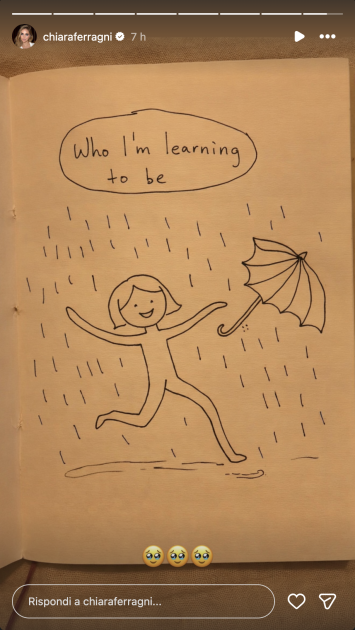 chiaraferragni 7 h
Who I'm learning
to be
🥹🥹🥹
Rispondi a chiaraferragni...